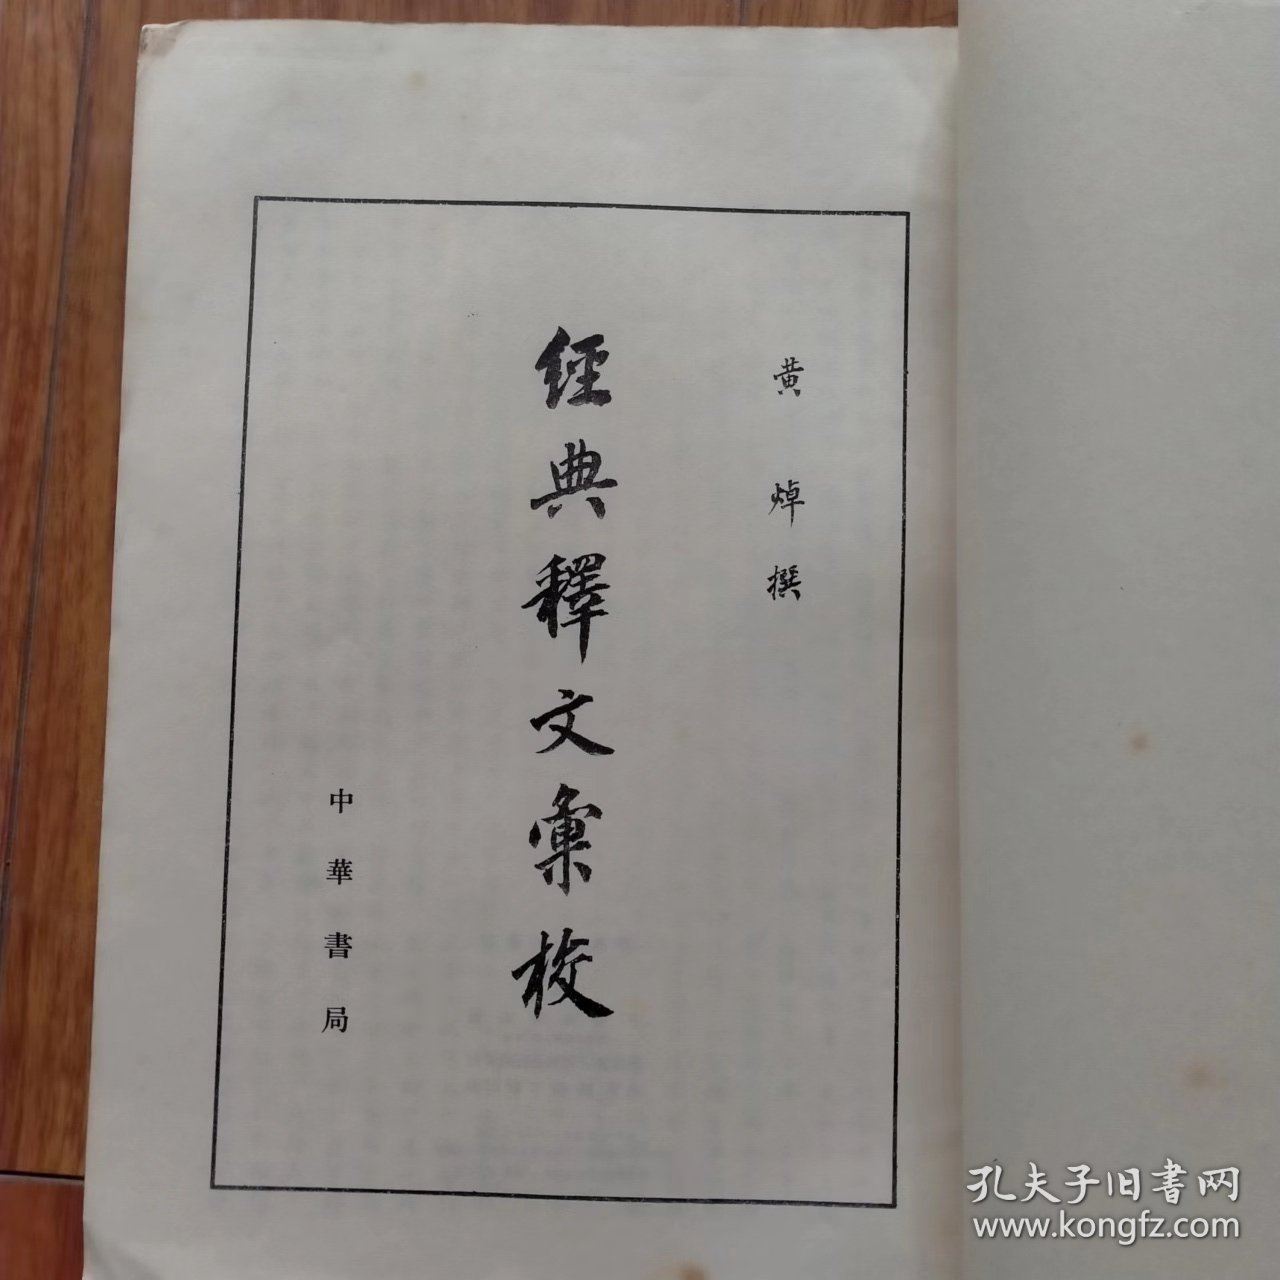 黄焯撰
經典釋文彙校
中華書局
孔夫子旧书网
www.kongfz.com